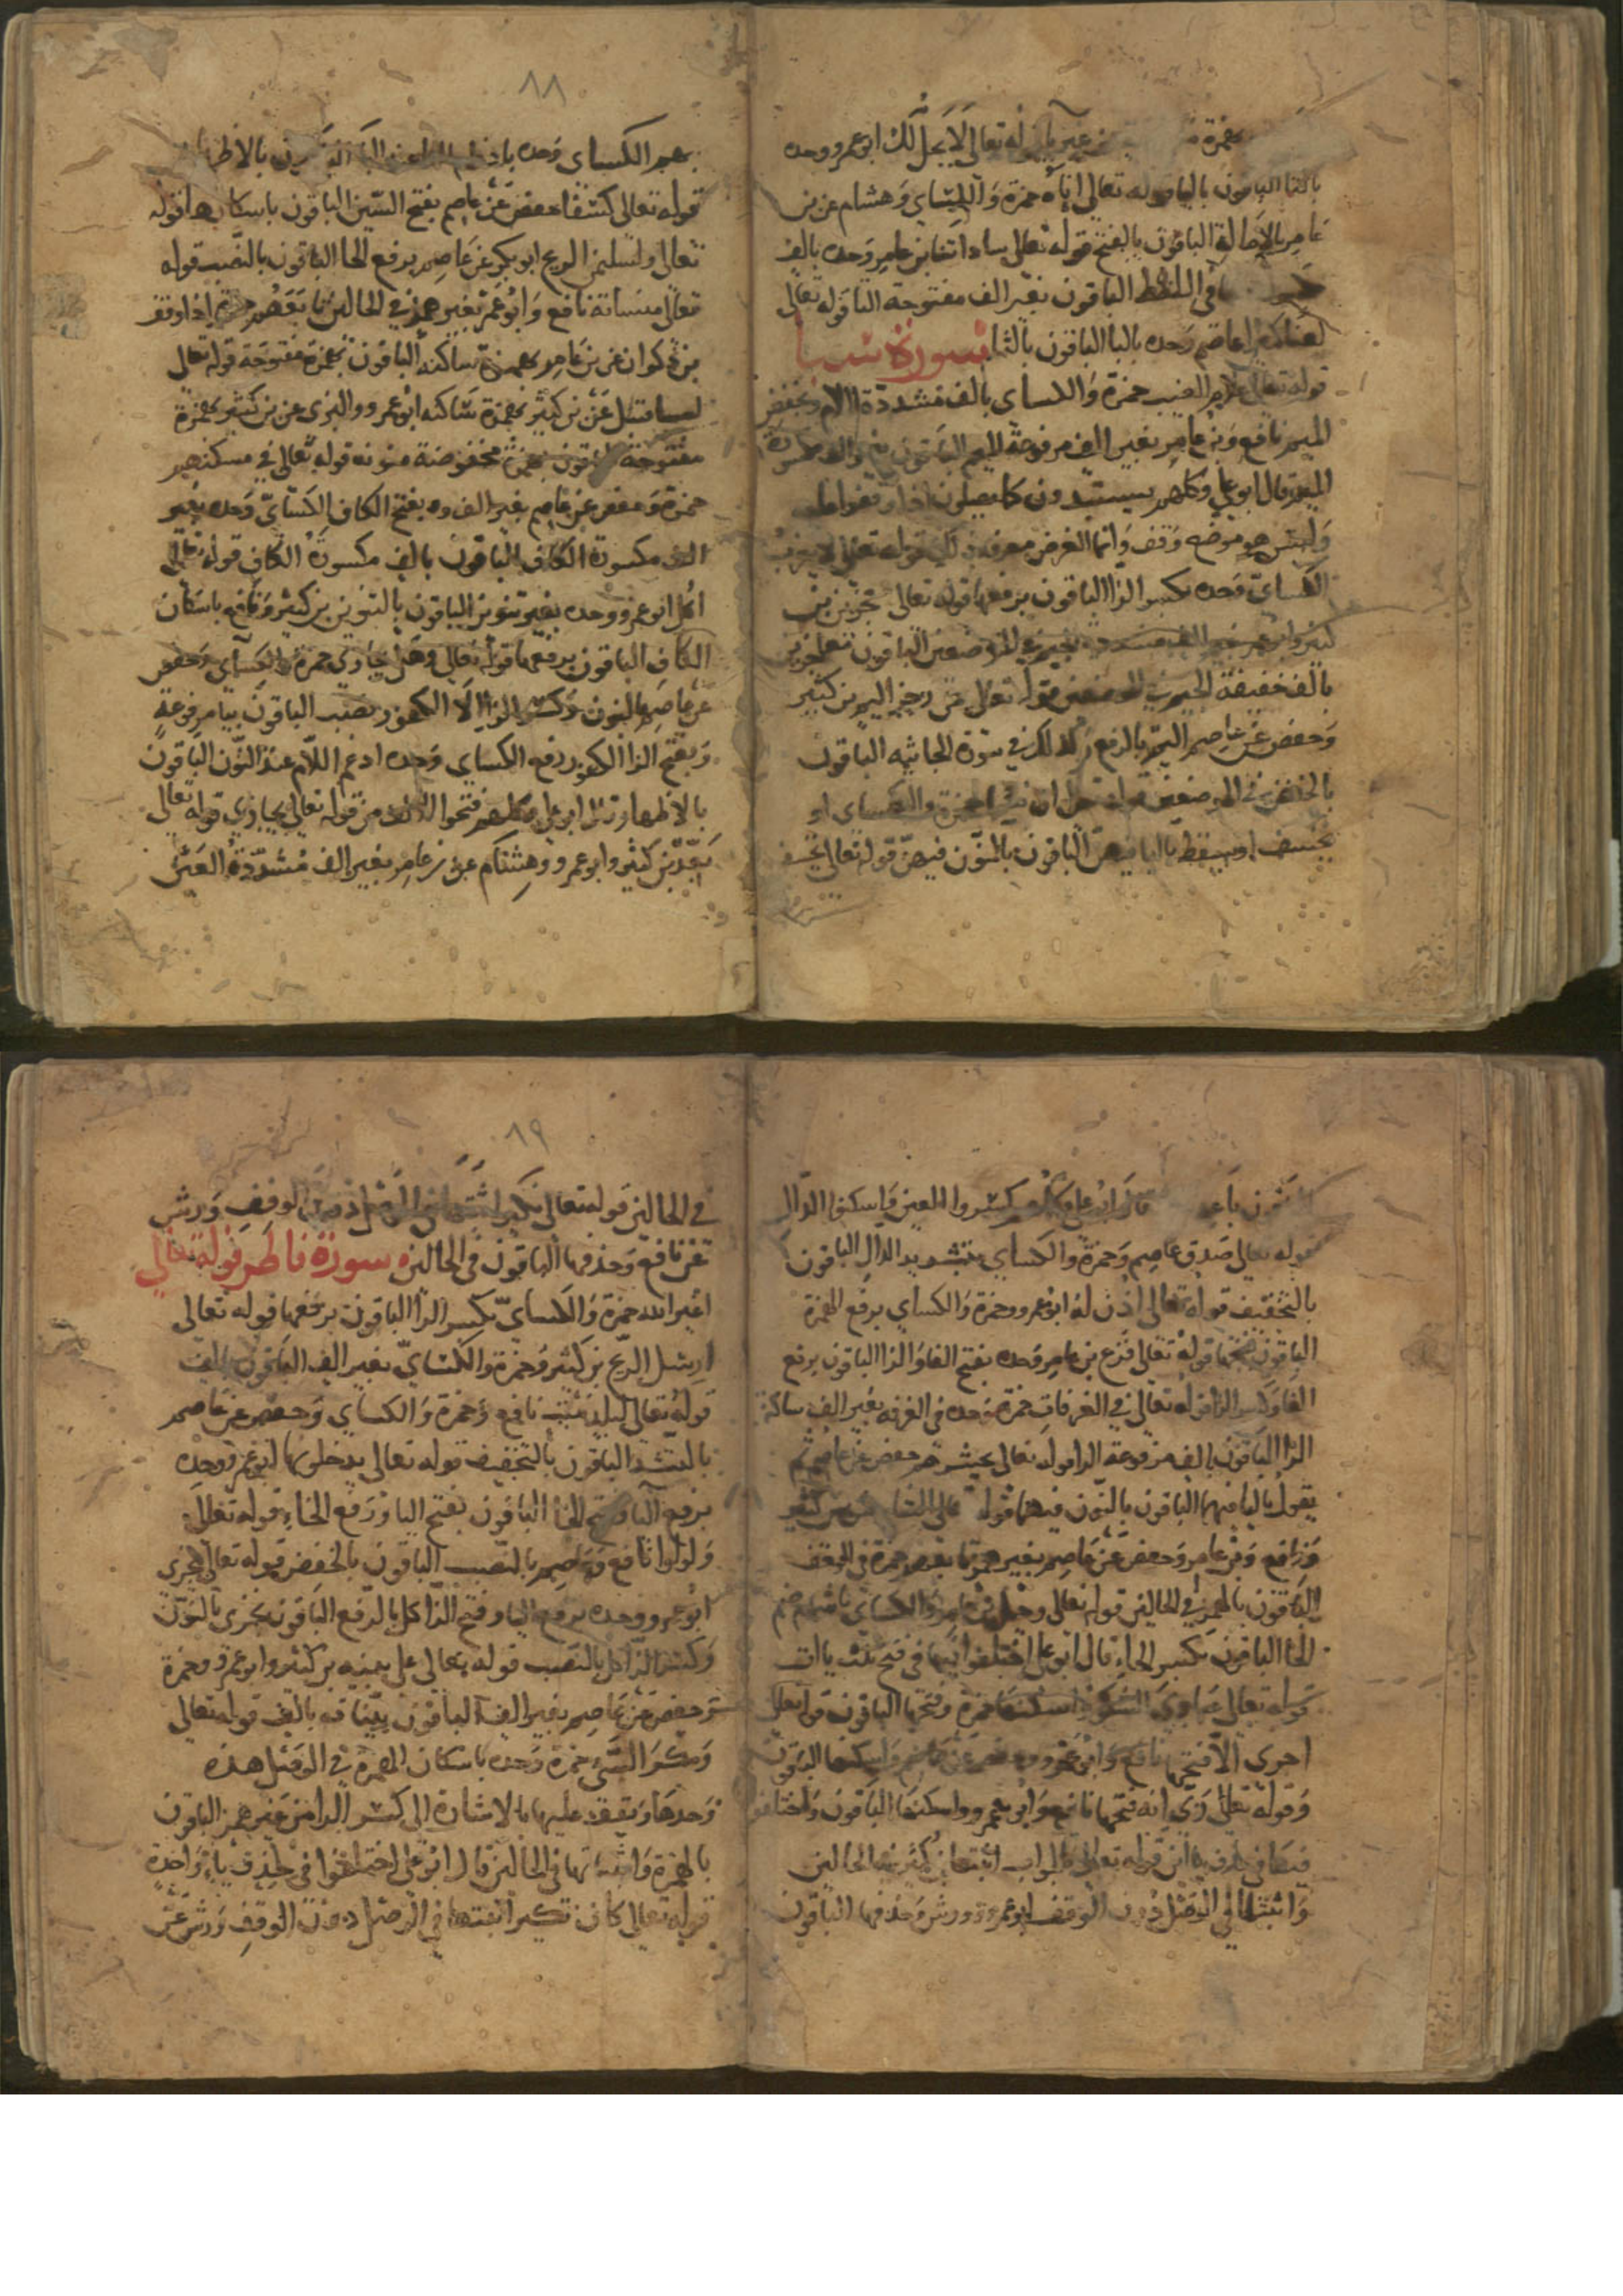 بهمزة من غير يا قوله تعالى لا يحل لك ابو عمرو وحده
بالتا الباقون باليا قوله تعالى اناه حمزة والكساى وهشام عن بن
عامر بالامالة الباقون بالفتح قوله تعالى ساداتنا بن عامر وحده بالف
فى اللفظ الباقون بغير الف مفتوحة التا قوله تعالى
لعنا كبيرا عاصم وحده بالبا الباقون بالثا سورة سبا
قوله تعالى علام الغيب حمزة والكساى بالف مشددة اللام وبخفض
الميم نافع وبن عامر بغير الف مرفوعة الميم الباقون
الميم قال ابو علي وكلهم يبتدون كما يصلون اذا وقفوا على
وليس هو موضع وقف وانما الغرض معرفة ذلك قوله تعالى لا يعزب
الكساىّ وحده بكسر الزا الباقون برفعها قوله تعالى معجزين بن
كثير وابو عمرو بغير الف مشددة الجيم في الموضعين الباقون معاجزين
بالف خفيفة الجيم في الموضعين قوله تعالى من رجز اليم بن كثير
وحفص عن عاصم اليم بالرفع وكذلك في سورة الجاثيه الباقون
بالخفض في الموضعين قوله تعالى ان يشا حمزة والكساى او
يخسف او يسقط باليا فيهن الباقون بالنون فيهن قوله تعالى يخسف
٨٨
بهم الكساى وحده بادغام الفا عند البا الباقون بالاظهار
قوله تعالى كسفا حفص عن عاصم بفتح السين الباقون باسكانها قوله
تعالى ولسليمن الريح ابو بكر عن عاصم برفع الحا الباقون بالنصب قوله
تعالى منساته نافع وابو عمرو بغير همز في الحالين تابعهم حمزة اذا وقف
بن ذكوان عن بن عامر بهمزة ساكنه الباقون بهمزة مفتوحة قوله تعالى
لسبا قنبل عن بن كثير بهمزة ساكنه ابو عمرو والبزى عن بن كثير بهمزة
مفتوحة الباقون بهمزة مخفوضة منونه قوله تعالى في مسكنهم
حمزة وحفص عن عاصم بغير الف وبفتح الكاف الكساىّ وحده بغير
الف مكسورة الكاف الباقون بالف مكسورة الكاف قوله تعالى
اكل ابو عمرو وحده بغير تنوين الباقون بالتنوين بن كثير ونافع باسكان
الكاف الباقون برفعها قوله تعالى وهل يجازي حمزة والكساى وحفص
عن عاصم بالنون وكسر الزا الا الكفور بنصب الباقون بيا مرفوعة
وبفتح الزا الكفور رفع الكساى وحده ادغم اللام عند النون الباقون
بالاظهار قال ابو على وكلهم فتحوا الواو من قوله تعالى يجازي قوله تعالى
بعد بن كثير وابو عمرو وهشام عن بن عامر بغير الف مشددة العين
الباقون باعد قال ابو على وكلهم كسروا العين واسكنوا الدال
قوله تعالى صدق عاصم وحمزة والكساي بتشديد الدال الباقون
بالتخفيف قوله تعالى اذن له ابو عمرو وحمزة والكساي برفع الهمزة
الباقون بفتحها قوله تعالى فزع بن عامر وحده بفتح الفا والزا الباقون برفع
الفا وكسر الزا قوله تعالى في الغرفات حمزة وحده فى الغرفه بغير الف ساكنة
الرا الباقون بالف مرفوعة الرا قوله تعالى يحشرهم حفص عن عاصم ثم
يقول باليا فيهما الباقون بالنون فيهما قوله تعالى التناوش بن كثير
ونافع وبن عامر وحفص عن عاصم بغير همز تابعهم حمزة فى الوقف
الباقون بالهمز في الحالين قوله تعالى وحيل بن عامر والكساي باشمام ضم
الحا الباقون بكسر الحاء قال ابو على اختلفوا فيها فى فتح ثلث ياات
قوله تعالى عبادي الشكور اسكنها حمزة وفتحها الباقون قوله تعالى
اجرى الا فتحها نافع وابو عمرو وحفص عن عاصم واسكنها الباقون
وقوله تعالى ربي انه فتحها نافع وابو عمرو واسكنها الباقون واختلفوا
فيها فى حذف ياين قوله تعالى كالجواب اثبتها بن كثير في الحالين
واثبتها في الوصل دون الوقف ابو عمرو وورش وحذفها الباقون
٨٩
في الحالين قوله تعالى نكير اثبتها في الوصل دون الوقف ورش
عن نافع وحذفها الباقون في الحالين سورة فاطر قوله تعالى
غير الله حمزة والكساىّ بكسر الرا الباقون برفعها قوله تعالى
ارسل الريح بن كثير وحمزة والكساىّ بغير الف الباقون بالف
قوله تعالى لبلد ميت نافع وحمزة والكساي وحفص عن عاصم
بالتشديد الباقون بالتخفيف قوله تعالى يدخلونها ابو عمرو وحده
برفع اليا وفتح الخا الباقون بفتح اليا ورفع الخاء قوله تعالى
ولولوا نافع وعاصم بالنصب الباقون بالخفض قوله تعالى يجزى
ابو عمرو وحده برفع اليا وفتح الزا كل بالرفع الباقون نجزى بالنون
وكسر الزا كل بالنصب قوله تعالى على بينه بن كثير وابو عمرو وحمزة
وحفص عن عاصم بغير الف الباقون بينات بالف قوله تعالى
ومكر السّىء حمزة وحده باسكان الهمزة في الوصل هذه
وحدها ويقف عليها بالاشارة الى كسر اليا من غير همز الباقون
بالهمزة واثباتها فى الحالين قال ابو على اختلفوا فى حذف ياء واحدة
قوله تعالى كان نكير اثبتها في الوصل دون الوقف ورش عن